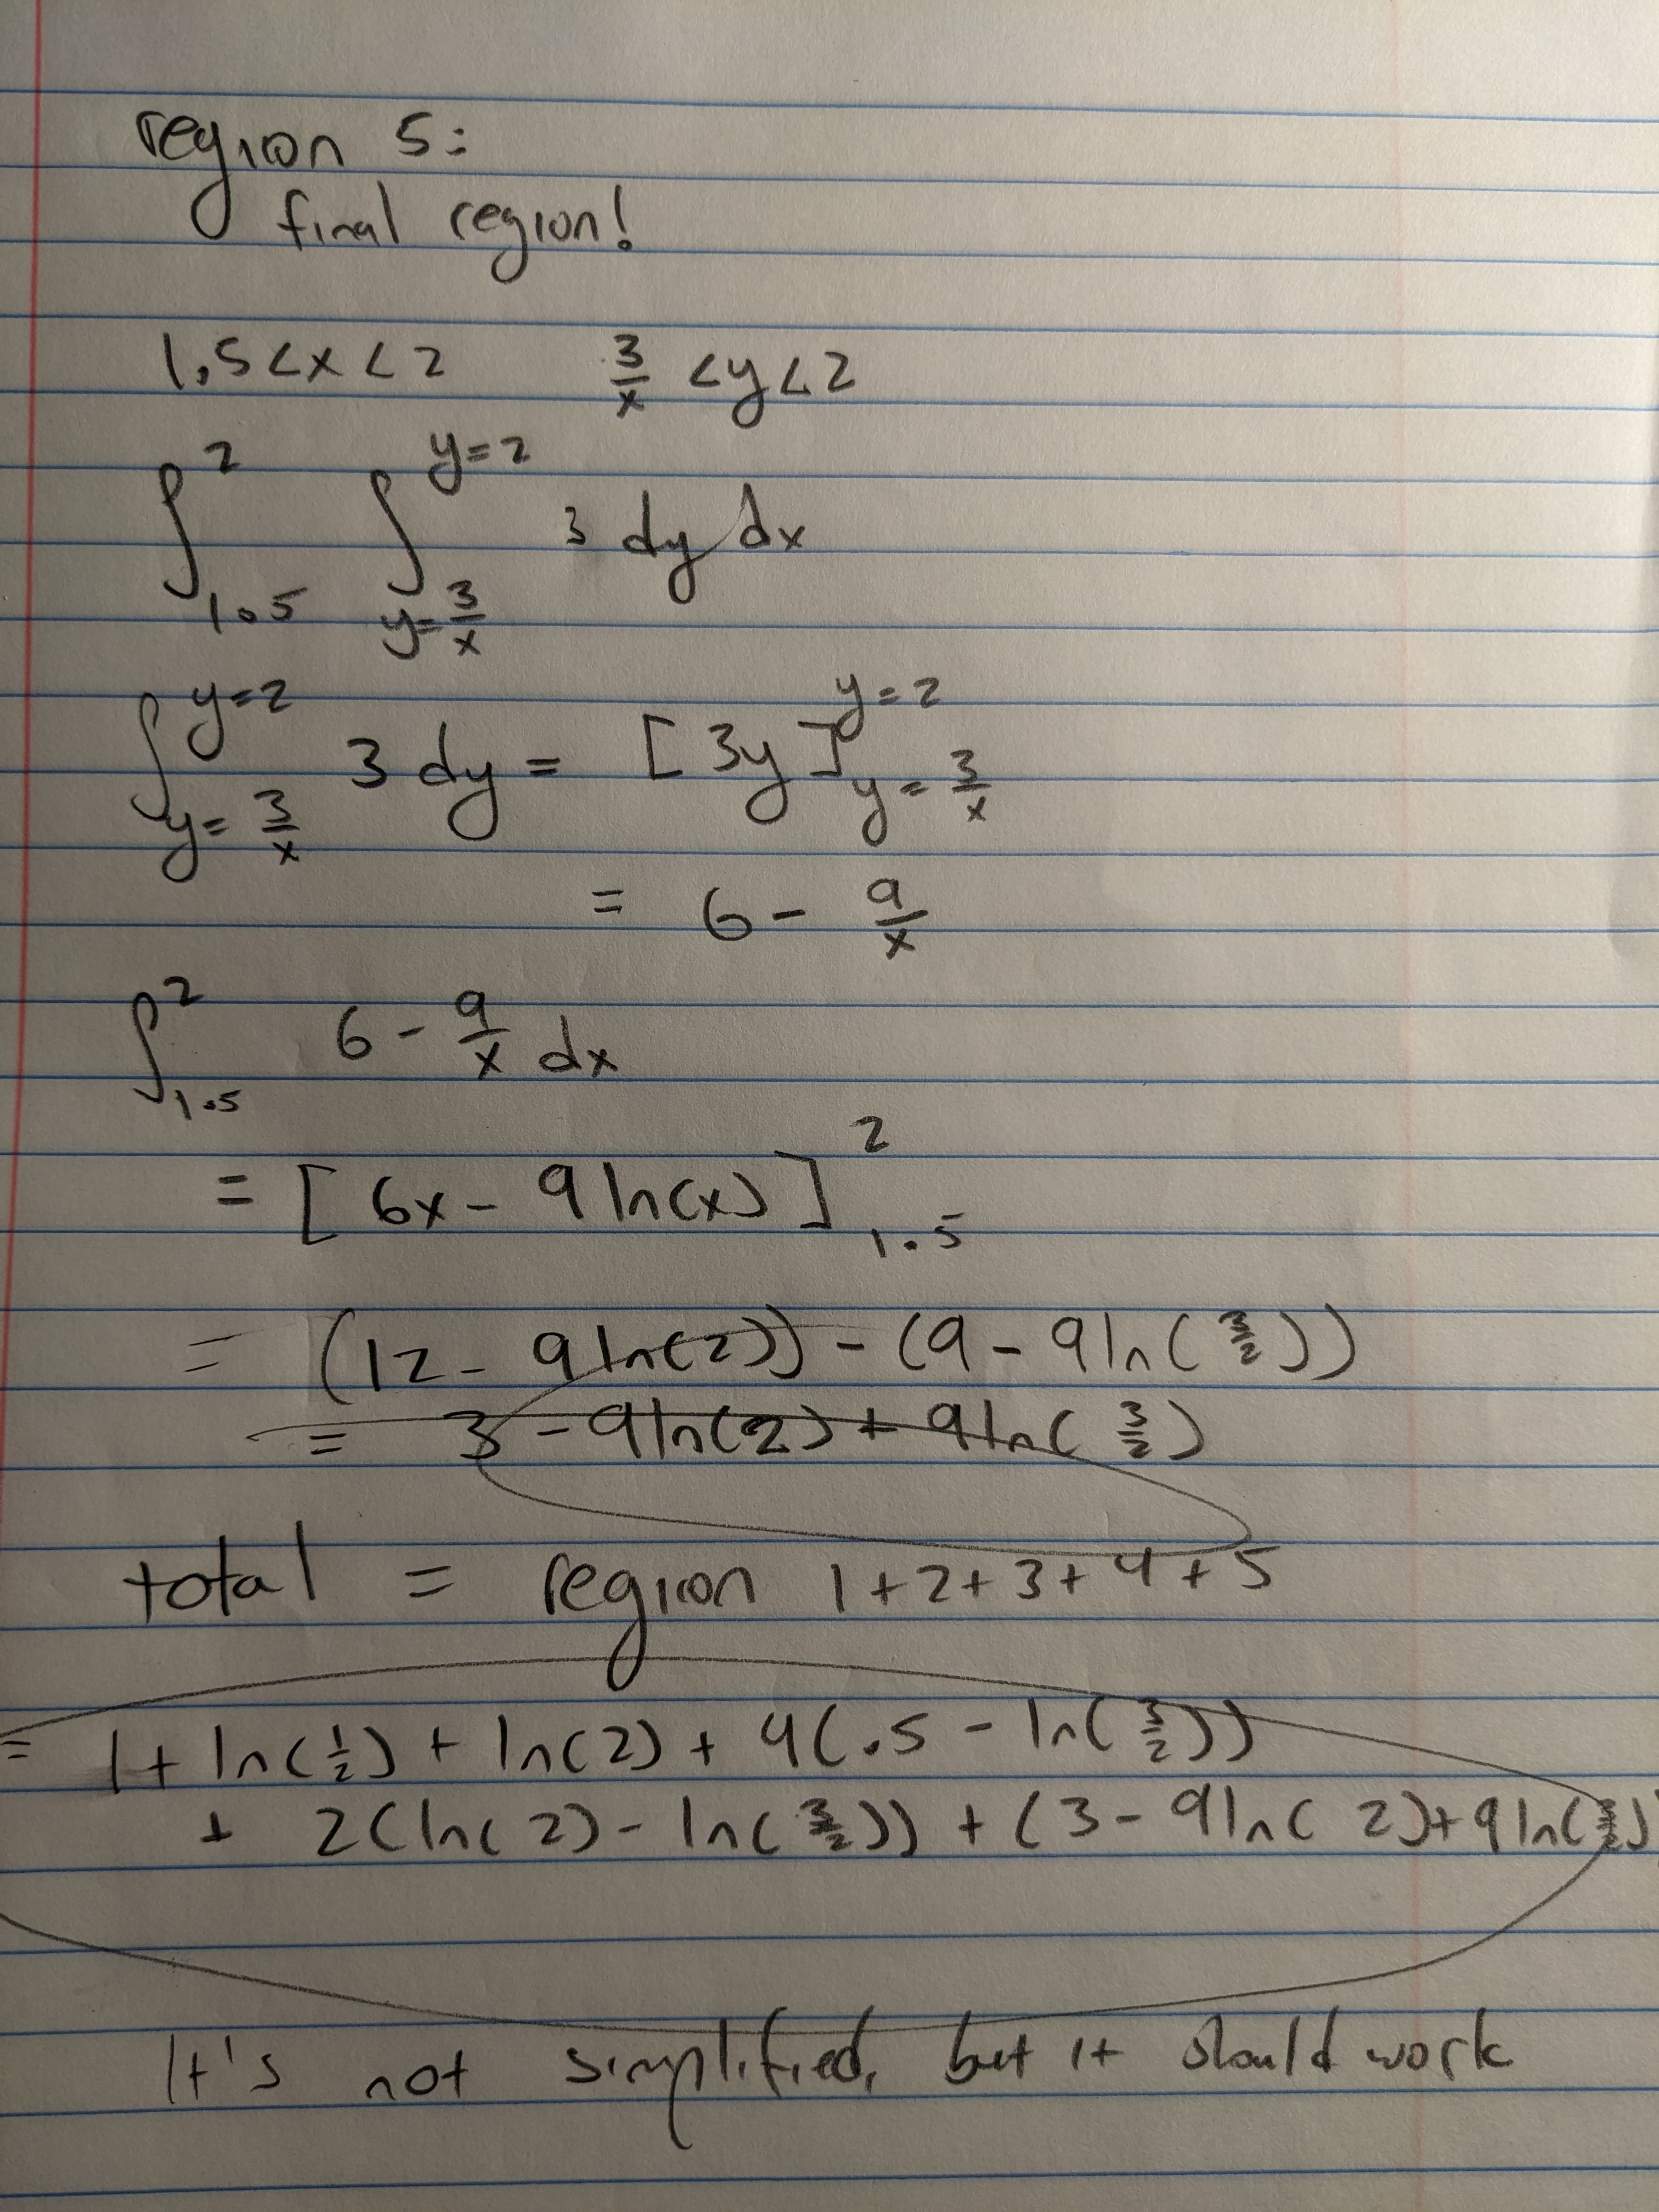 region 5:
final region!
1.5<x<2    3/x <y<2
∫_{1.5}^{2} ∫_{y=3/x}^{y=2} 3 dy dx
∫_{y=3/x}^{y=2} 3 dy = [3y]_{y=3/x}^{y=2}
= 6 - 9/x
∫_{1.5}^{2} 6 - 9/x dx
= [6x - 9 ln(x)]_{1.5}^{2}
= (12 - 9 ln(2)) - (9 - 9 ln(3/2))
= 3 - 9 ln(2) + 9 ln(3/2)
total = region 1+2+3+4+5
= 1 + ln(1/2) + ln(2) + 4(.5 - ln(3/2))
+ 2(ln(2) - ln(3/2)) + (3 - 9 ln(2) + 9 ln(3/2)
It's not simplified, but it should work